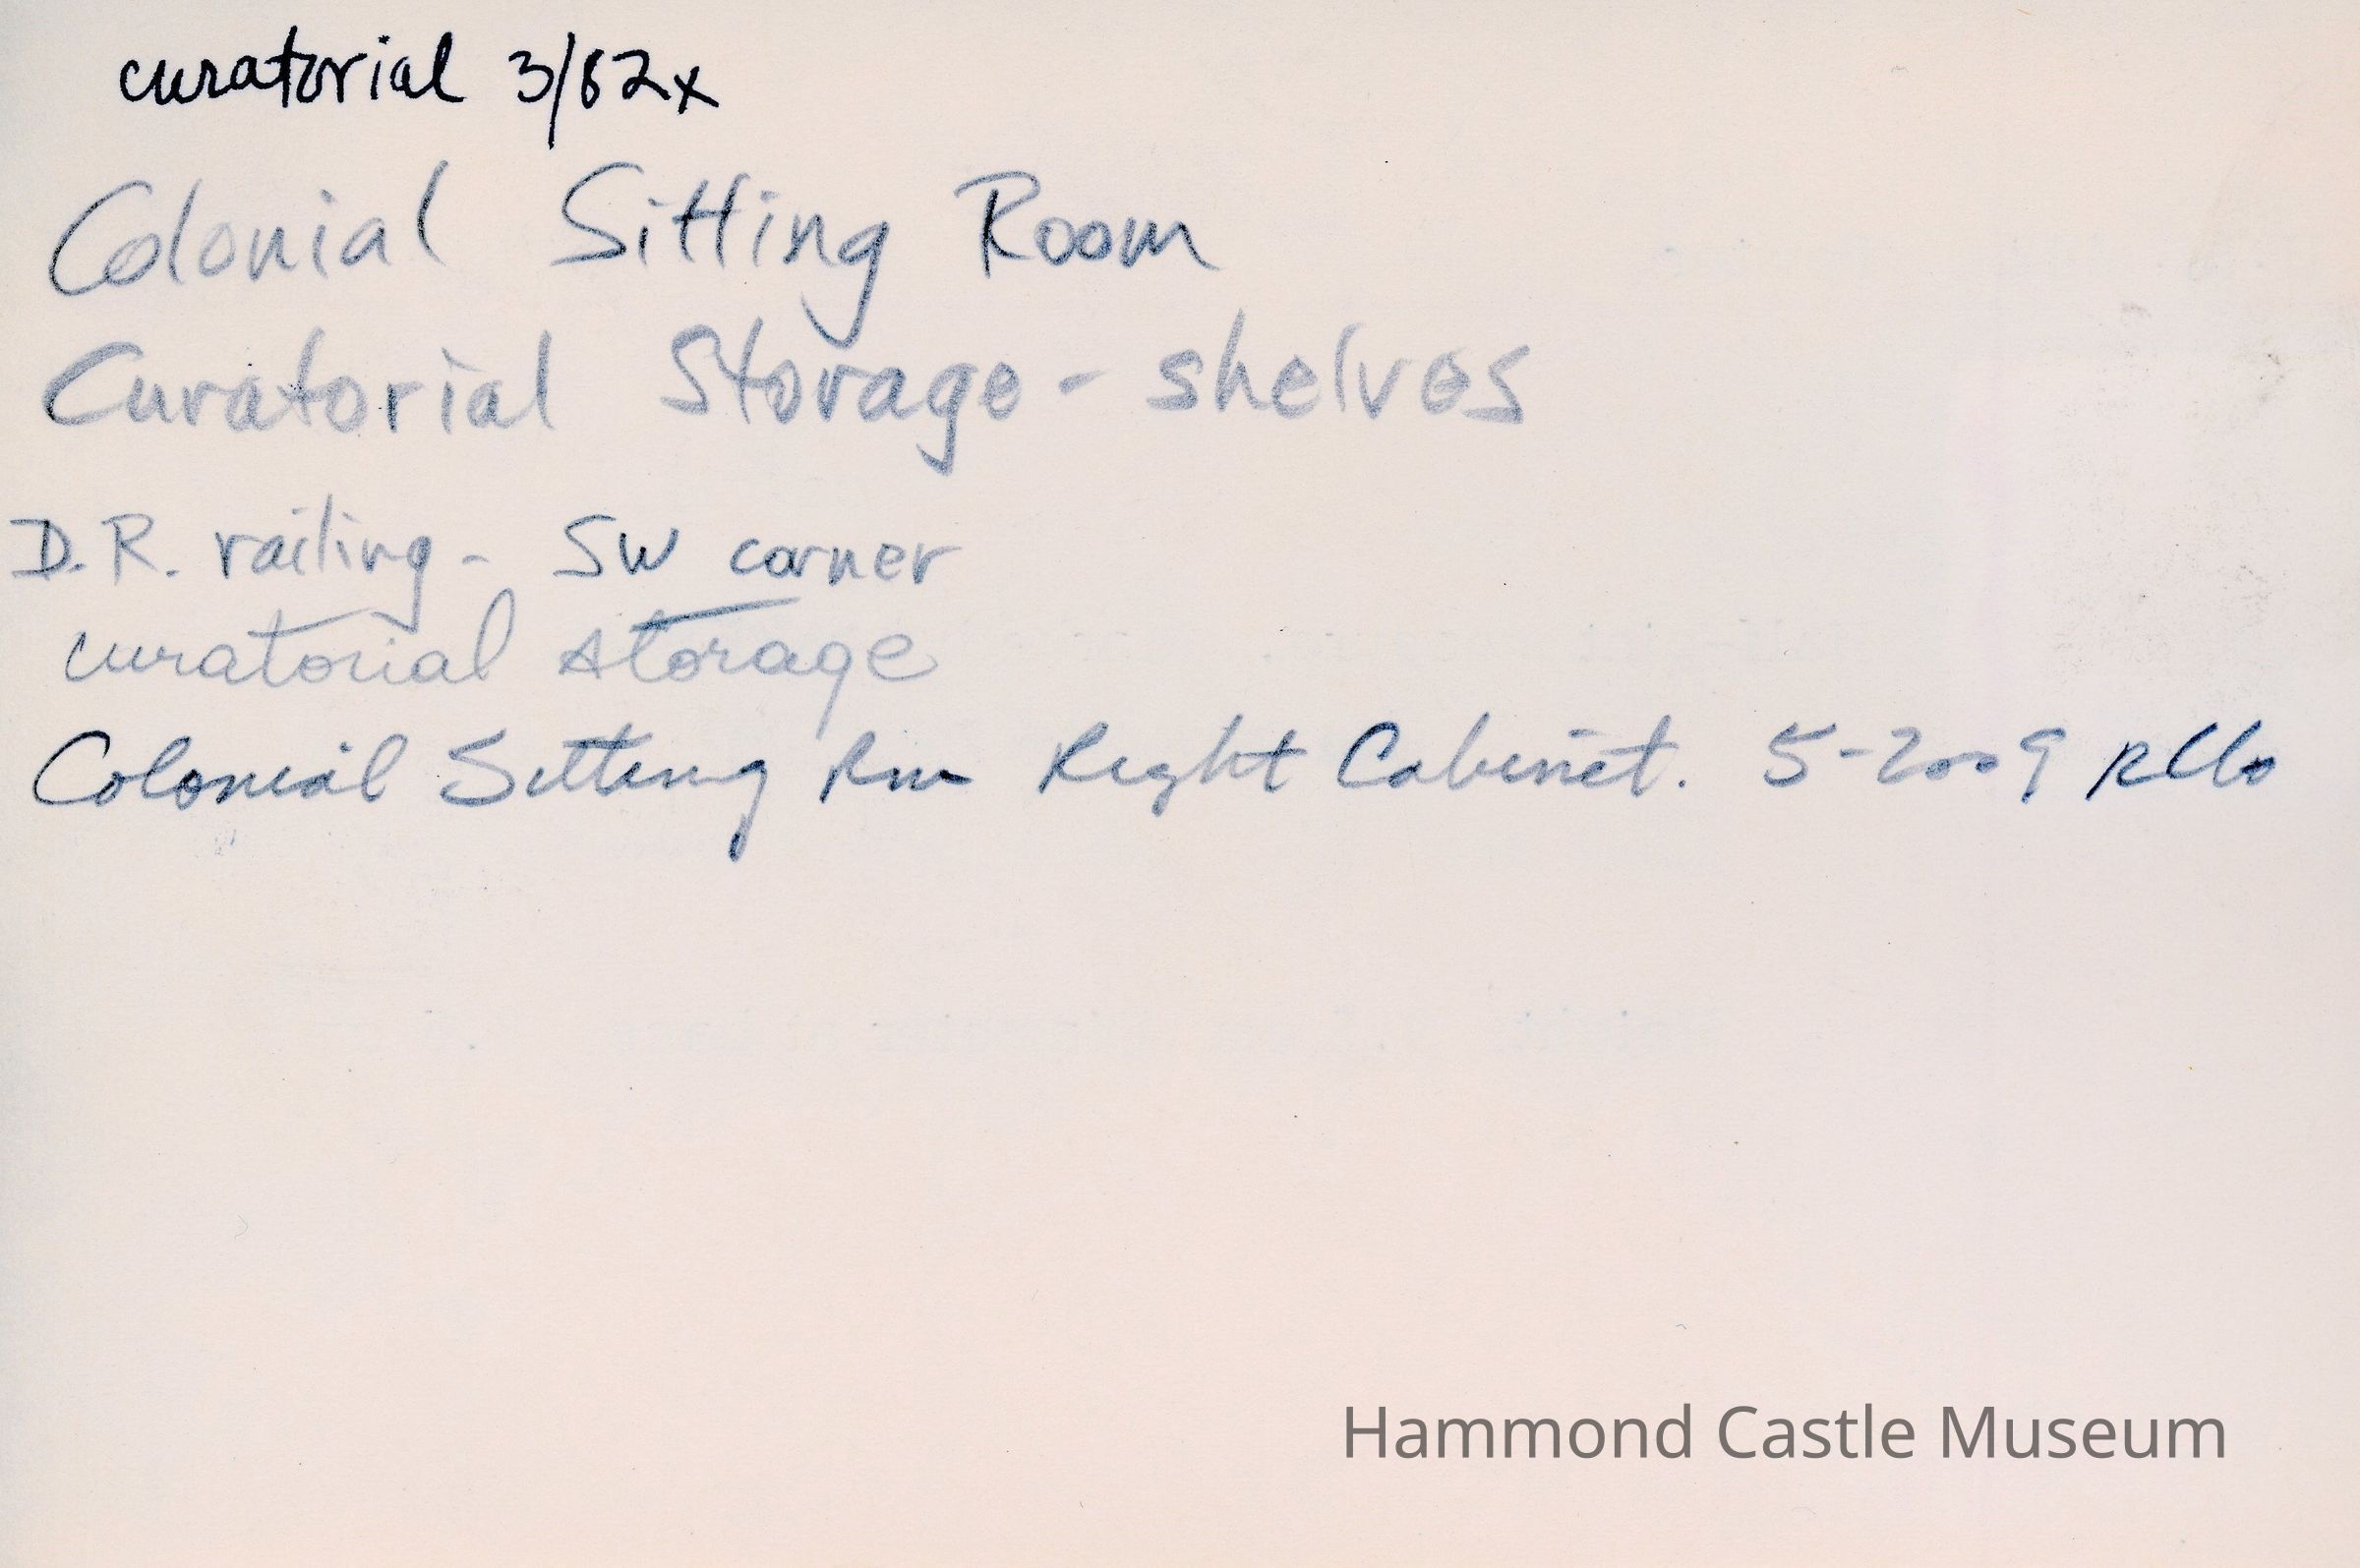 curatorial 3/82x
Colonial Sitting Room
Curatorial Storage - shelves
D.R. railing - SW corner
curatorial storage
Colonial Sitting Rm Right Cabinet. 5-2009
Hammond Castle Museum